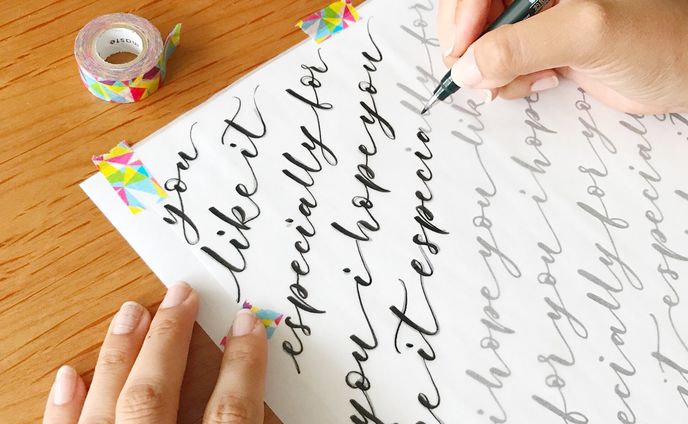 you
like it
especially for
you i hope you
it especially for
i hope you like
for you i hope
especially for you
it especially
maste